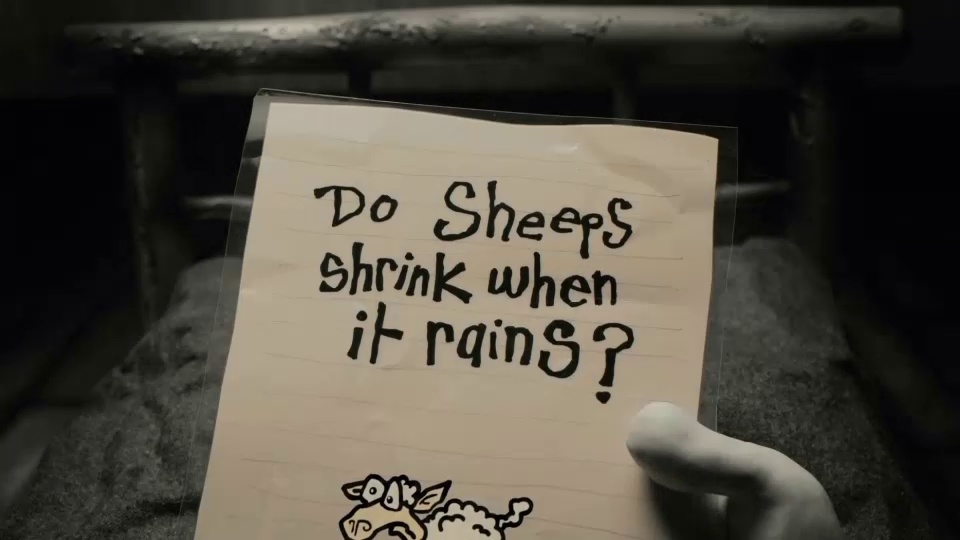 Do Sheeps
shrink when
it rains?